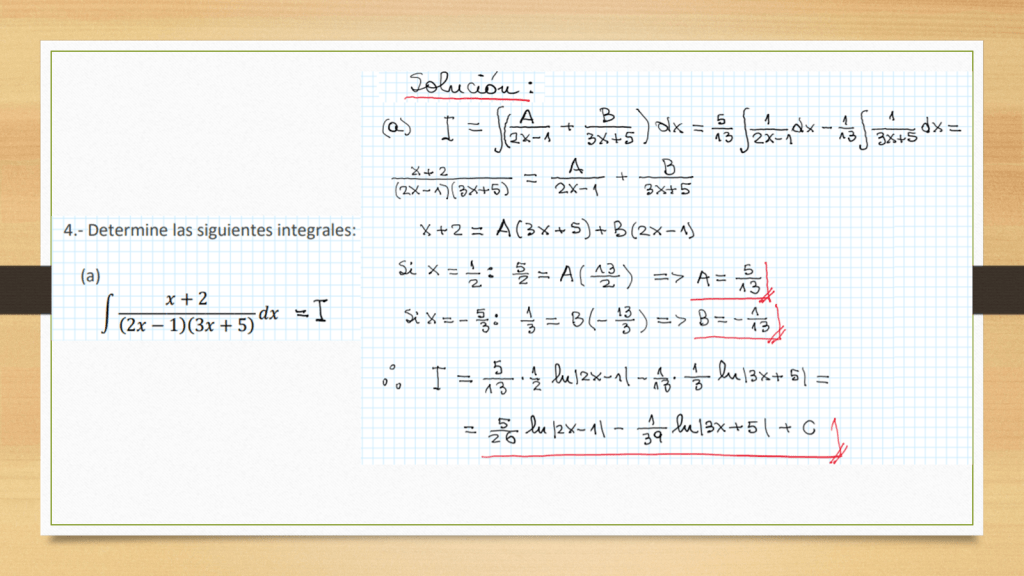 4.- Determine las siguientes integrales:
(a)
∫ (x + 2)/((2x − 1)(3x + 5)) dx = I
Solución:
(a) I = ∫(A/(2x−1) + B/(3x+5)) dx = 5/13 ∫ 1/(2x−1) dx − 1/13 ∫ 1/(3x+5) dx =
(x+2)/((2x−1)(3x+5)) = A/(2x−1) + B/(3x+5)
x+2 = A(3x+5)+B(2x−1)
Si x = 1/2 : 5/2 = A(13/2) => A = 5/13
Si x = −5/3 : 1/3 = B(−13/3) => B = −1/13
∴ I = 5/13 · 1/2 ln|2x−1| − 1/13 · 1/3 ln|3x+5| =
= 5/26 ln|2x−1| − 1/39 ln|3x+5| + C